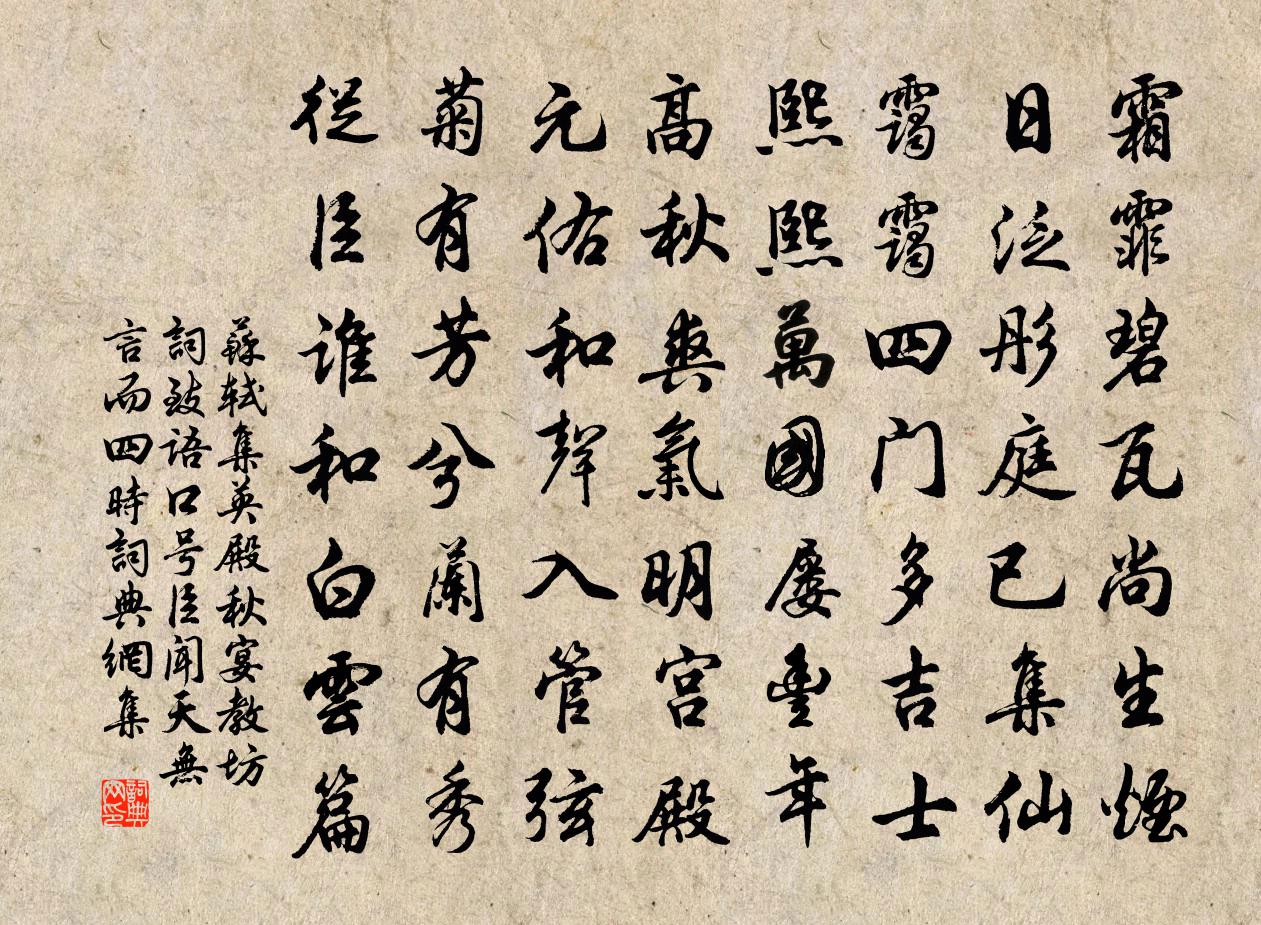 霜霏碧瓦尚生煙
日泛彤庭已集仙
靄靄四门多吉士
熙熙萬國屡豊年
髙秋爽氣明宮殿
元佑和聲入管弦
菊有芳兮蘭有秀
從臣誰和白雲篇
蘇軾集英殿秋宴教坊
詞致語口号臣聞天無
言而四時詞典網集
詞典
网印